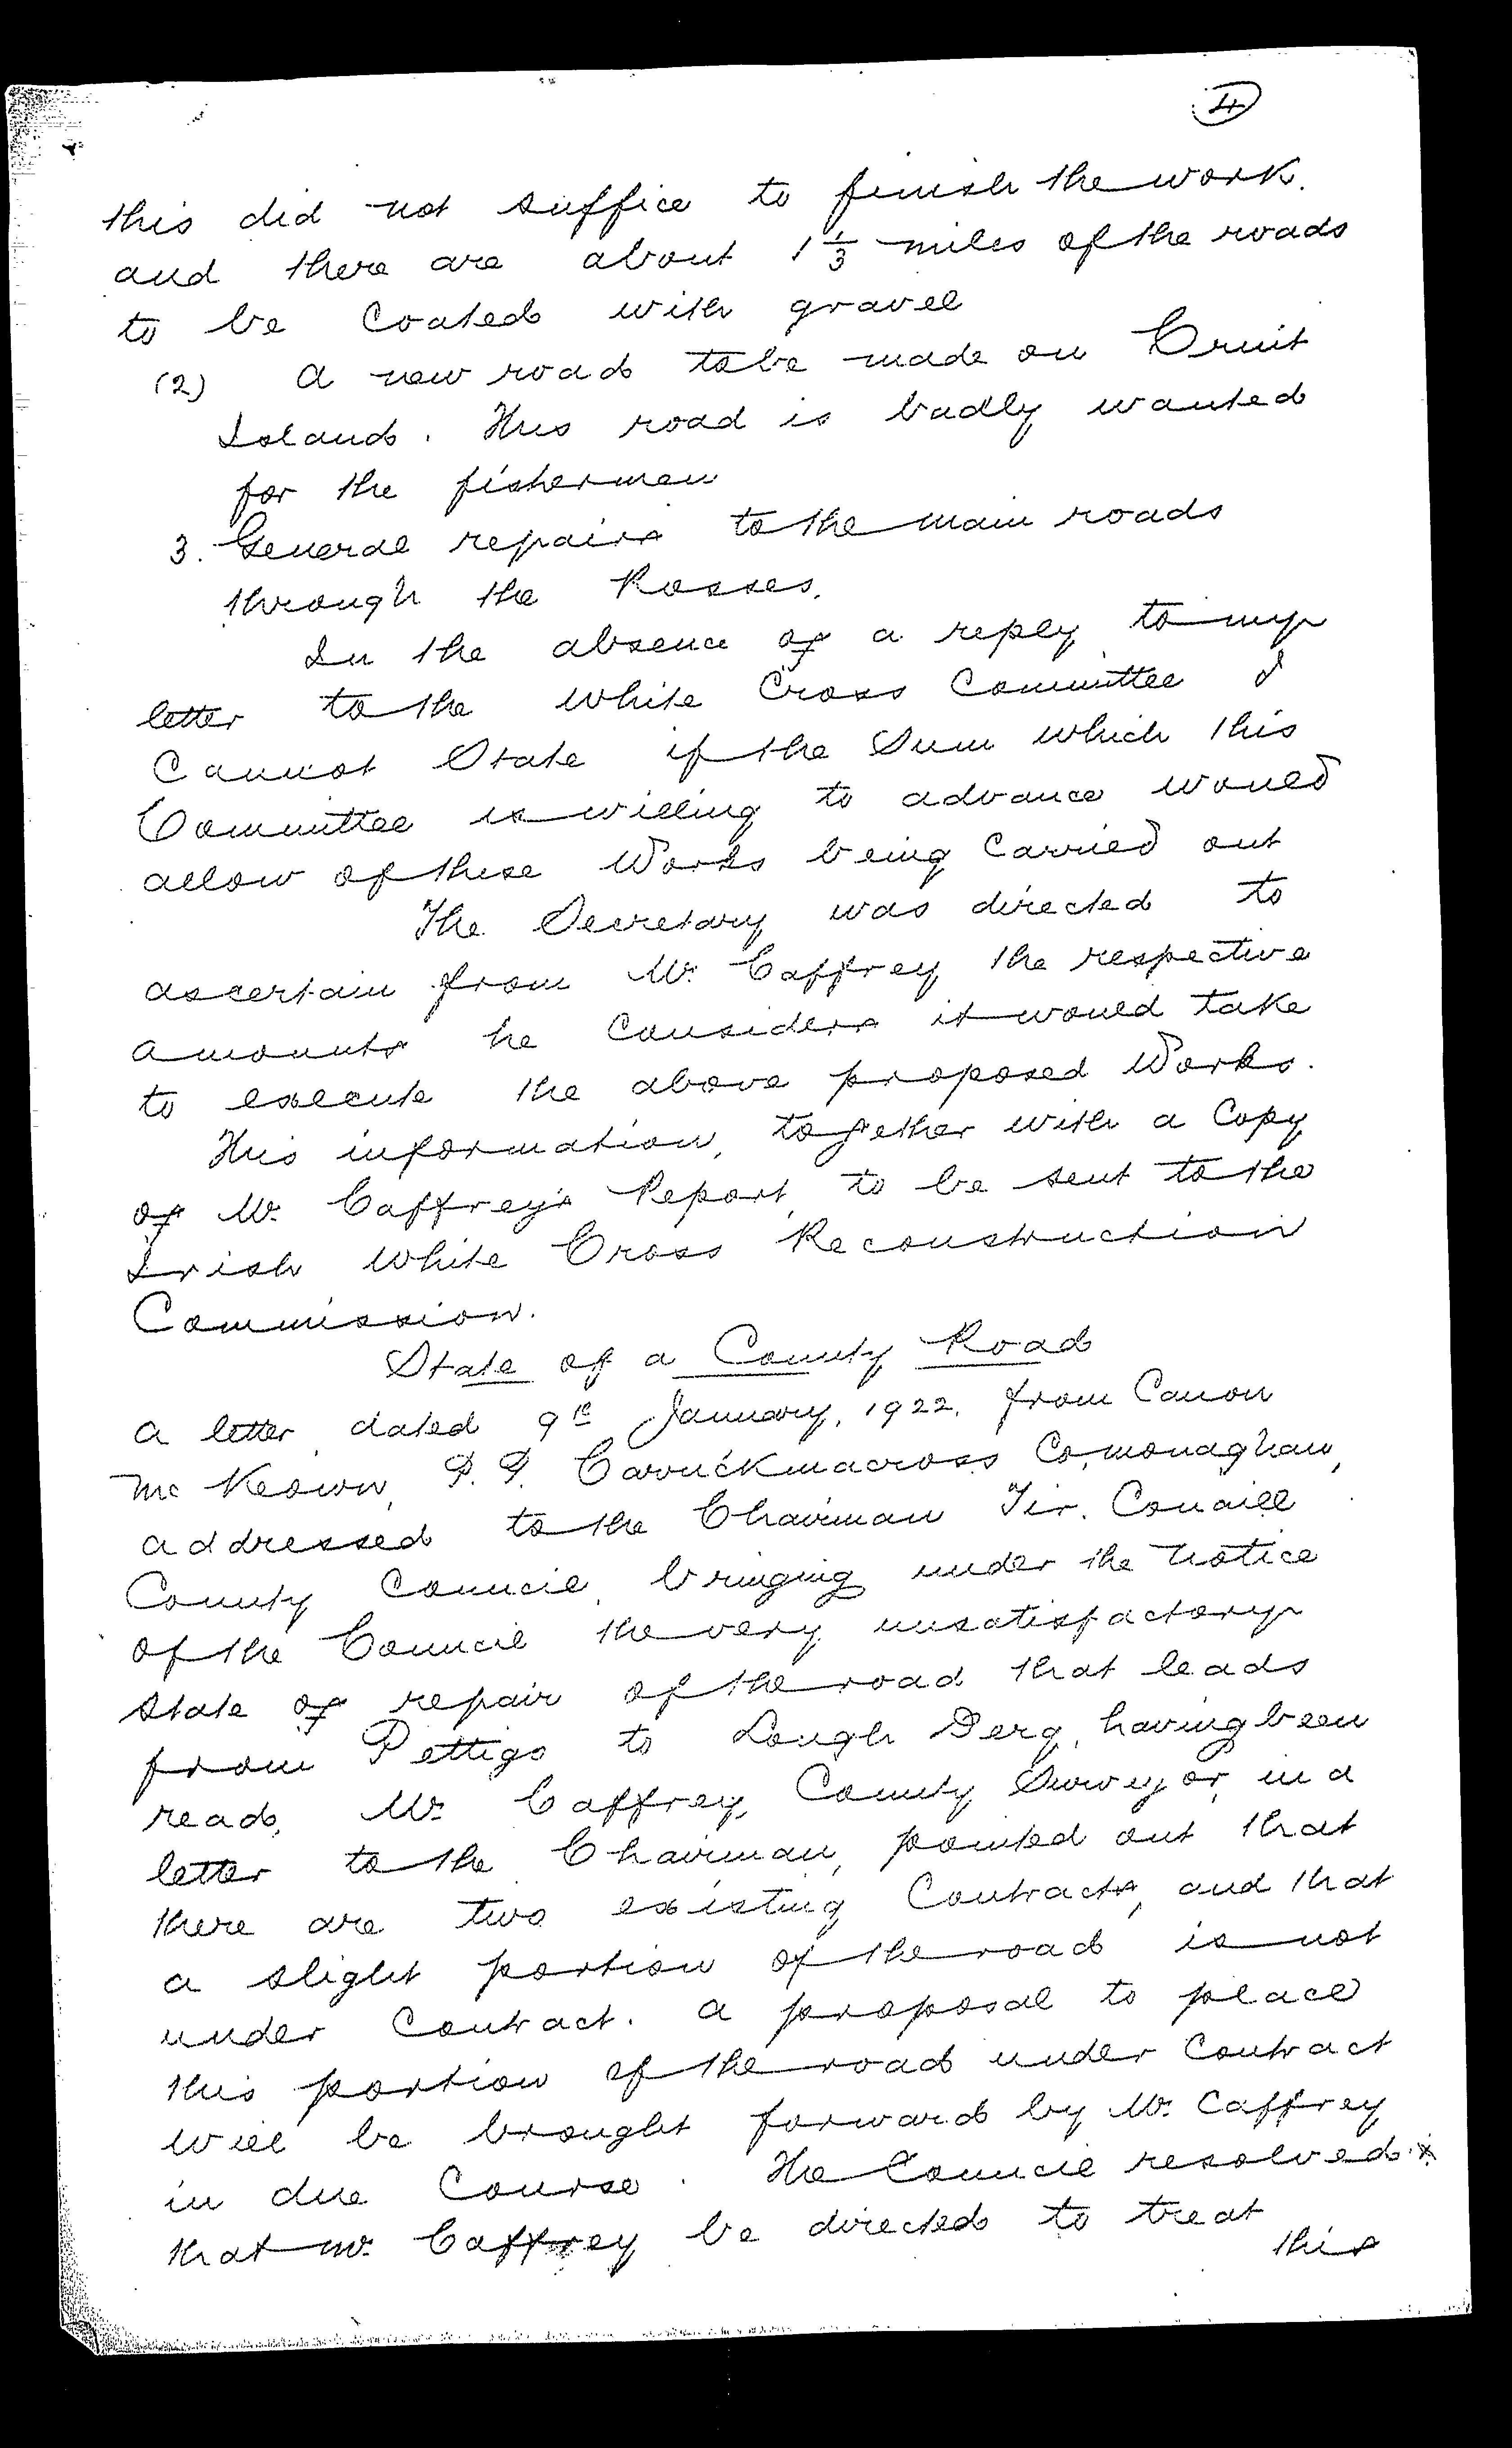 4
this did not suffice to finish the work.
and there are about 1 1/3 miles of the roads
to be Coated with gravel
(2) A new road to be made on Cruit
Island. This road is badly wanted
for the fishermen
3. General repairs to the main roads
through the Rosses.
In the absence of a reply to my
letter to the White Cross Committee I
Cannot State if the Sum which this
Committee is willing to advance would
allow of these Works being Carried out
The Secretary was directed to
ascertain from Mr. Caffrey the respective
amounts he Considers it would take
to execute the above proposed Works.
This information, together with a Copy
of Mr. Caffrey's Report, to be sent to the
Irish White Cross Reconstruction
Commission.
State of a County Road
A letter dated 9th January, 1922, from Canon
McKeown, P.P. Carrickmacross Co, Monaghan,
addressed to the Chairman Tir. Conaill
County Council, bringing under the notice
of the Council the very unsatisfactory
state of repair of the road that leads
from Pettigo to Lough Derg, having been
read, Mr. Caffrey, County Surveyor, in a
letter to the Chairman, pointed out that
there are two existing Contracts, and that
a slight portion of the road is not
under Contract. A proposal to place
this portion of the road under Contract
will be brought forward by Mr. Caffrey
in due Course. The Council resolved *
that Mr. Caffrey be directed to treat
this